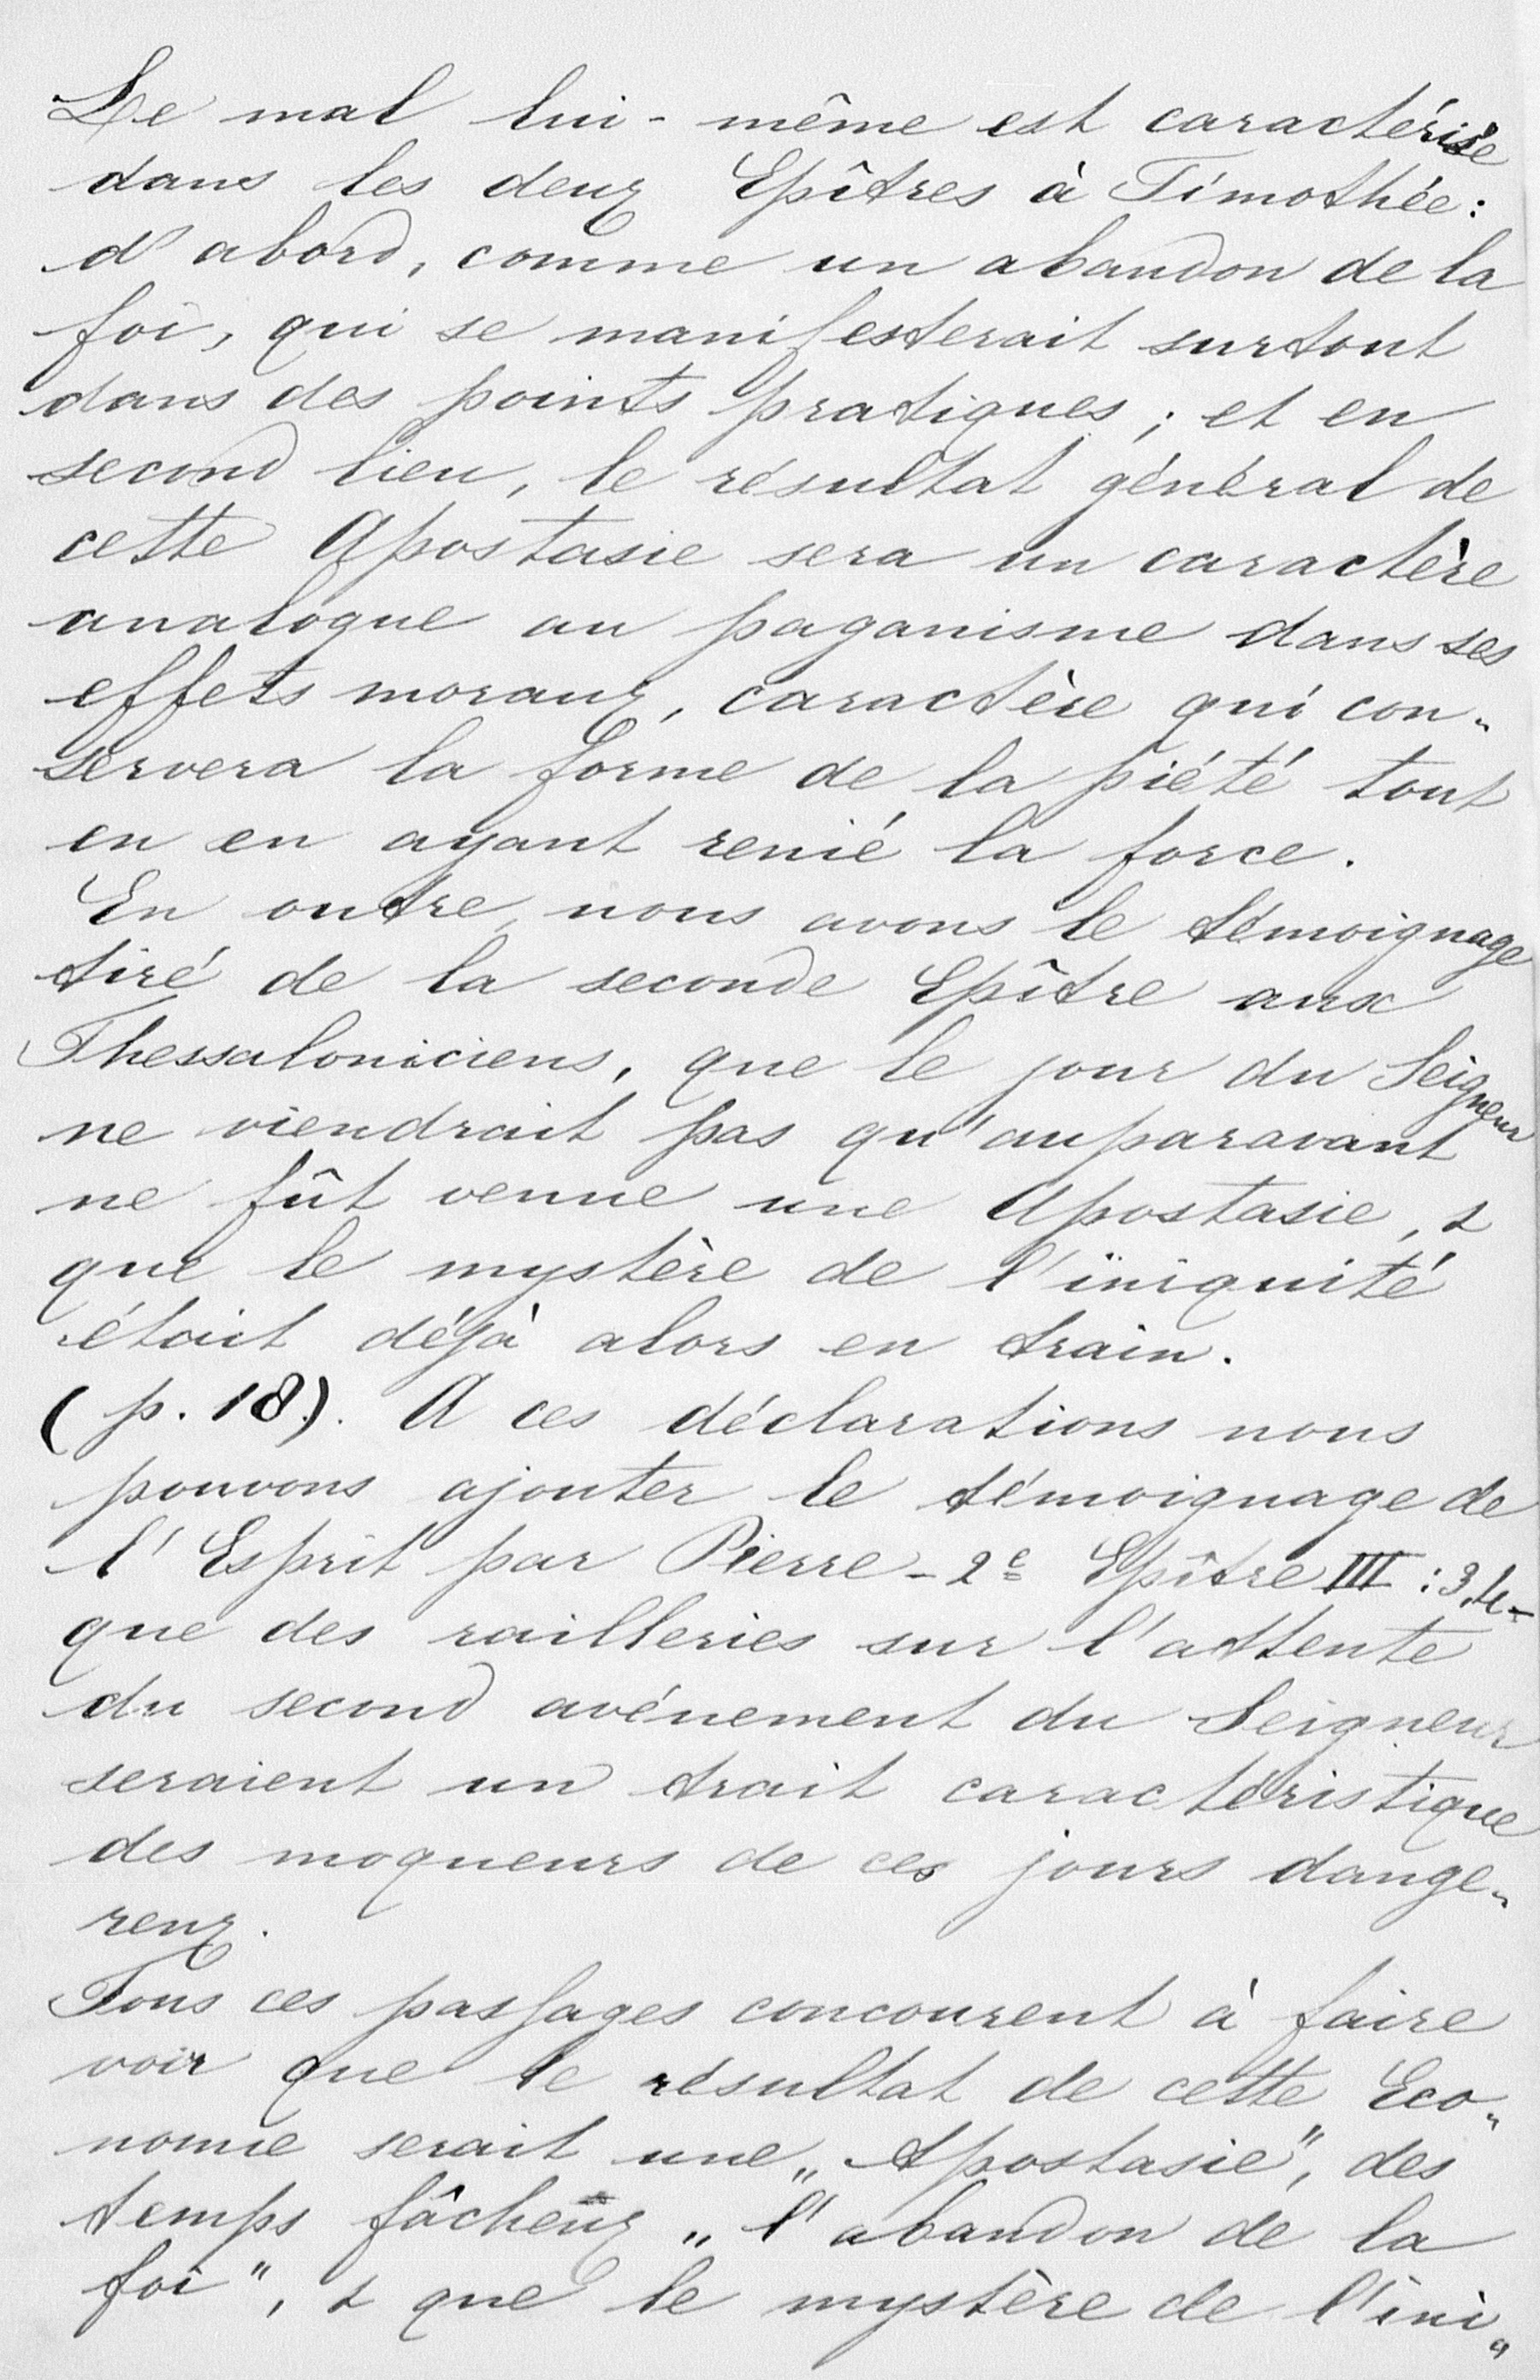 Le mal lui-même est caractérisé
dans les deux Epîtres à Timothée:
d'abord, comme un abandon de la
foi, qui se manifesterait surtout
dans des points pratiques; et en
second lieu, le résultat général de
cette Apostasie sera un caractère
analogue au paganisme dans ses
effets moraux, caractère qui con„
servera la forme de la piété tout
en en ayant renié la force.
En outre, nous avons le témoignage
tiré de la seconde Epître aux
Thessaloniciens, que le jour du Seigneur
ne viendrait pas qu'auparavant
ne fût venue une Apostasie, &
que le mystère de l'iniquité
était déjà alors en train.
(p. 18.). A ces déclarations nous
pouvons ajouter le témoignage de
l'Esprit par Pierre - 2e Epître III: 3,4-
que des railleries sur l'attente
du second avénement du Seigneur
seraient un trait caractéristique
des moqueurs de ces jours dange„
reux.
Tous ces passages concourent à faire
voir que le résultat de cette Eco„
nomie serait une „Apostasie", des
temps fâcheux „l'abandon de la
foi", & que le mystère de l'ini„